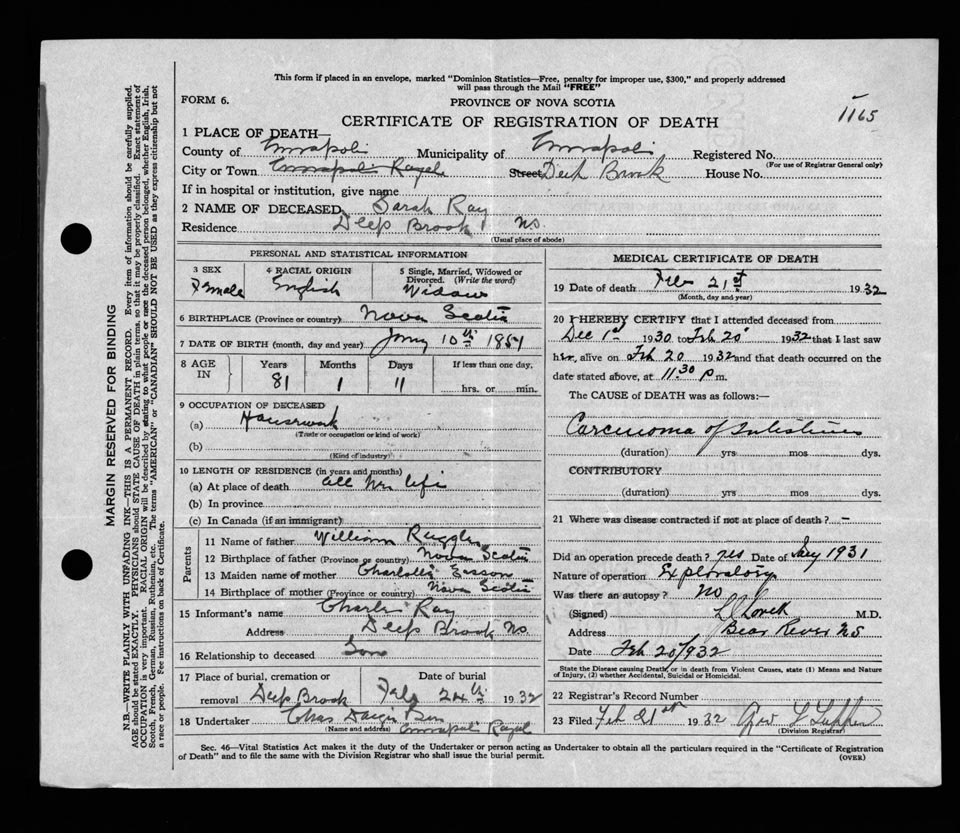 This form if placed in an envelope, marked "Dominion Statistics—Free, penalty for improper use, $300," and properly addressed
will pass through the Mail "FREE"
FORM 6.
PROVINCE OF NOVA SCOTIA
1165
CERTIFICATE OF REGISTRATION OF DEATH
1 PLACE OF DEATH—
County of Annapolis Municipality of Annapolis Registered No.
(For use of Registrar General only)
City or Town Annapolis Royal Street Deep Brook House No.
If in hospital or institution, give name
2 NAME OF DECEASED Sarah Ray
Residence Deep Brook NS.
(Usual place of abode)
PERSONAL AND STATISTICAL INFORMATION
3 SEX 4 RACIAL ORIGIN 5 Single, Married, Widowed or Divorced. (Write the word)
Female English Widow
6 BIRTHPLACE (Province or country) Nova Scotia
7 DATE OF BIRTH (month, day and year) Jany 10th 1851
8 AGE IN Years Months Days If less than one day,
81 1 11 hrs. or min.
9 OCCUPATION OF DECEASED
(a) Housework
(Trade or occupation or kind of work)
(b)
(Kind of industry)
10 LENGTH OF RESIDENCE (in years and months)
(a) At place of death all her life
(b) In province
(c) In Canada (if an immigrant)
Parents
11 Name of father William Ruggles
12 Birthplace of father (Province or country) Nova Scotia
13 Maiden name of mother Charlotte
14 Birthplace of mother (Province or country) Nova Scotia
15 Informant's name Charles Ray
Address Deep Brook NS.
16 Relationship to deceased Son
17 Place of burial, cremation or removal Deep Brook Date of burial Feb 24th 1932
18 Undertaker Chas
(Name and address) Annapolis Royal
MEDICAL CERTIFICATE OF DEATH
19 Date of death Feb 21st 1932
(Month, day and year)
20 I HEREBY CERTIFY that I attended deceased from
Dec 1st 1930 to Feb 20 1932 that I last saw
her, alive on Feb 20 1932 and that death occurred on
date stated above, at 11.30 p m.
The CAUSE of DEATH was as follows:—
Carcinoma of Intestines
(duration) yrs mos dys.
CONTRIBUTORY
(duration) yrs mos dys.
21 Where was disease contracted if not at place of death? —
Did an operation precede death? yes Date of Jany 1931
Nature of operation Exploratory
Was there an autopsy? No
(Signed) M.D.
Address Bear River NS
Date Feb 20/1932
State the Disease causing Death, or in death from Violent Causes, state (1) Means and Nature
of Injury, (2) whether Accidental, Suicidal or Homicidal.
22 Registrar's Record Number
23 Filed Feb 21st 1932 Geo L
(Division Registrar)
Sec. 46—Vital Statistics Act makes it the duty of the Undertaker or person acting as Undertaker to obtain all the particulars required in the "Certificate of Registration
of Death" and to file the same with the Division Registrar who shall issue the burial permit.
(OVER)
MARGIN RESERVED FOR BINDING
N.B.—WRITE PLAINLY WITH UNFADING INK—THIS IS A PERMANENT RECORD. Every item of information should be carefully supplied.
AGE should be stated EXACTLY. PHYSICIANS should STATE CAUSE OF DEATH in plain terms, so that it may be properly classified. Exact statement of
OCCUPATION is very important. RACIAL ORIGIN will be described by stating to what people or race the deceased person belonged, whether English, Irish,
Scotch, French, German, Russian, Ruthenian, etc. The terms "AMERICAN" or "CANADIAN" SHOULD NOT BE USED as they express citizenship but not
a race or people. See instructions on back of Certificate.